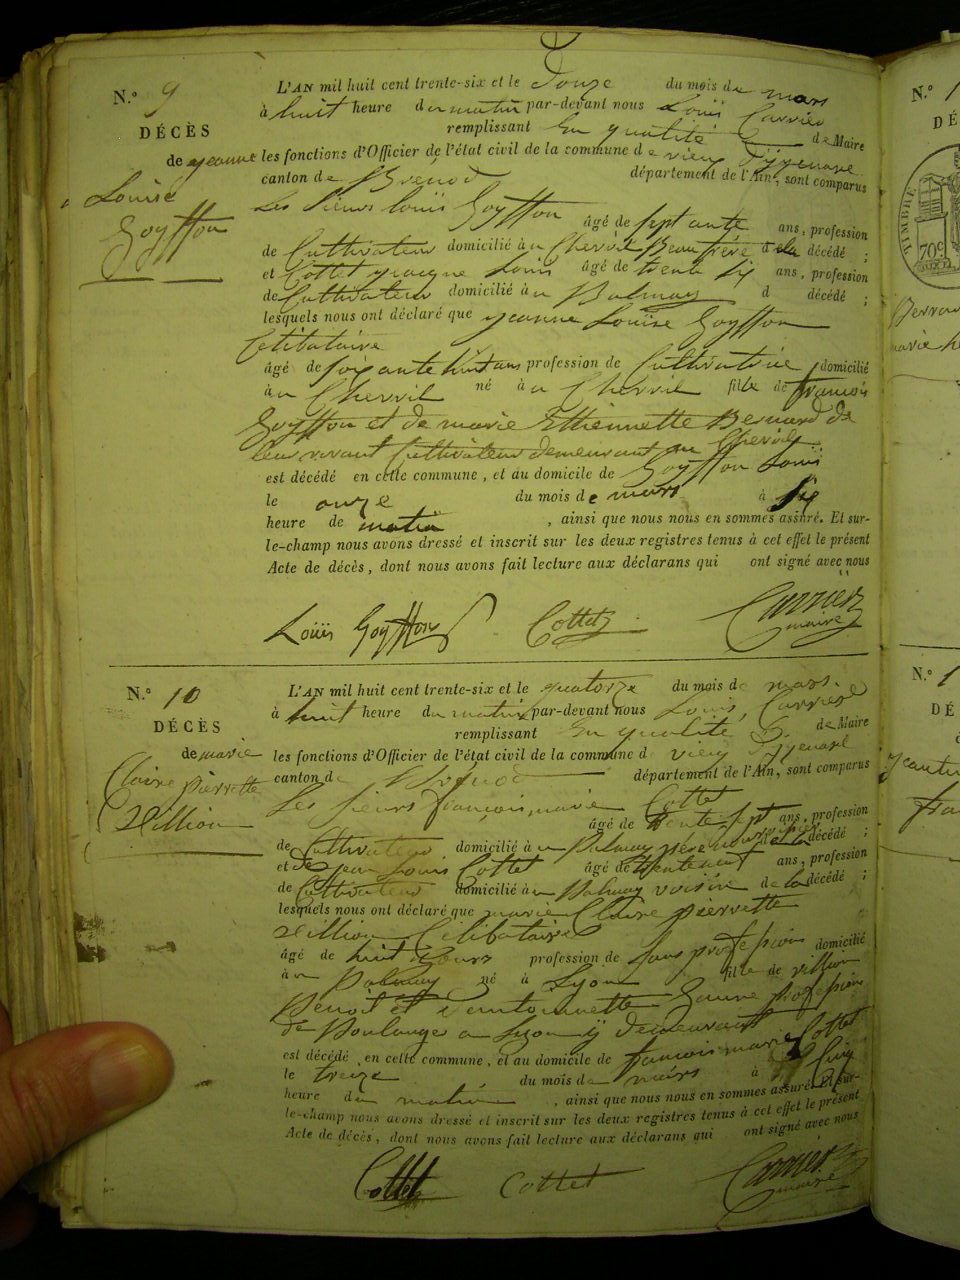 N.° 9
DÉCÈS
de yeanne
Louise
Goyffon
L'AN mil huit cent trente-six et le Douze du mois de mars
à huit heure du matin par-devant nous Louïs Carrier
remplissant En qualité de Maire
les fonctions d'Officier de l'état civil de la commune de vieu Dyzenave
canton de Brénod département de l'Ain, sont comparus
Les Sieurs Louïs Goyffon âgé de sept ante ans, profession
de Cultivateur domicilié à Chevril Beau frère de la décédé ;
et Cottet yacque Louis âgé de trente six ans, profession
de Cultivateur domicilié à Balmay d décédé ;
lesquels nous ont déclaré que yeanne Louïse Goyffon
Célibataire
âgé de soixante huit ans profession de Cultivatrice domicilié
à Chevril né à Chevril fille de francois
Goyffon et de marie Ethiennette Bernard de
leur vivant Cultivateur demeurant au Chevril
est décédé en cette commune, et au domicile de Goyffon Louïs
le onze du mois de mars à six
heure de matin , ainsi que nous nous en sommes assuré. Et sur-
le-champ nous avons dressé et inscrit sur les deux registres tenus à cet effet le présent
Acte de décès, dont nous avons fait lecture aux déclarans qui ont signé avec nous
Louïs Goyffon Cottet Carrier
maire
N.° 10
DÉCÈS
de marie
Claire pierrette
Villion
L'AN mil huit cent trente-six et le quatorze du mois de mars
à huit heure du matin par-devant nous Louis Carrier
remplissant En qualité de Maire
les fonctions d'Officier de l'état civil de la commune d vieu Dyzenave
canton de Brénod département de l'Ain, sont comparus
Les sieurs francois marie Cottet
âgé de trente sept ans, profession
de Cultivateur domicilié à Balmay père nourricier de la décédé ;
et de Jean Louis Cottet âgé de ans, profession
de Cultivateur domicilié à Balmay voisin de la décédé ;
lesquels nous ont déclaré que marie Claire pierrette
Villion Célibataire
âgé de huit jours profession de Sans profession domicilié
à Balmay né à Lyon fille de villion
Benoit et dentoinnette profession
de Boulanger a Lyon ÿ demeurant
est décédé en cette commune, et au domicile de francois marie Cottet
le treize du mois de mars à Cinq
heure du matin , ainsi que nous nous en sommes assuré. Et sur-
le-champ nous avons dressé et inscrit sur les deux registres tenus à cet effet le présent
Acte de décès, dont nous avons fait lecture aux déclarans qui ont signé avec nous
Cottet Cottet Carrier
maire
N.° 1
DÉ
TIMBRE
70c
N.° 1
DÉ